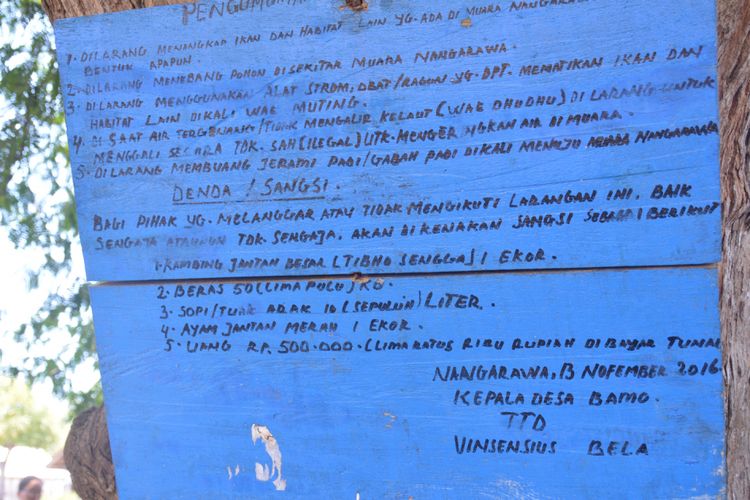 PENGUMUMAN
1. DILARANG MENANGKAP IKAN DAN HABITAT LAIN YG. ADA DI MUARA NANGARAWA
BENTUK APAPUN.
2. DILARANG MENEBANG POHON DISEKITAR MUARA NANGARAWA.
3. DILARANG MENGGUNAKAN ALAT STROM, OBAT/RACUN YG. DPT. MEMATIKAN IKAN DAN
HABITAT LAIN DIKALI WAE MUTING.
4. DI SAAT AIR TERGENANG/TIDAK MENGALIR KELAUT (WAE DHODHU) DI LARANG UNTUK
MENGGALI SECARA TDK. SAH (ILEGAL) UTK. MENGERINGKAN AIR DI MUARA.
5. DILARANG MEMBUANG JERAMI PADI/GABAH PADI DIKALI MENUJU MUARA NANGARAWA
DENDA / SANGSI.
BAGI PIHAK YG. MELANGGAR ATAU TIDAK MENGIKUTI LARANGAN INI, BAIK
SENGAJA ATAUPUN TDK. SENGAJA, AKAN DI KENAKAN SANGSI SEBAGAI BERIKUT
1. KAMBING JANTAN BESAR (TIBHO SENGGA) 1 EKOR.
2. BERAS 50 (LIMA PULU) KG.
3. SOPI/TUAK ARAK 10 (SEPULUH) LITER.
4. AYAM JANTAN MERAH 1 EKOR.
5. UANG RP. 500.000. (LIMA RATUS RIBU RUPIAH DI BAYAR TUNAI
NANGARAWA, 13 NOFEMBER 2016
KEPALA DESA BAMO.
TTD
VINSENSIUS BELA